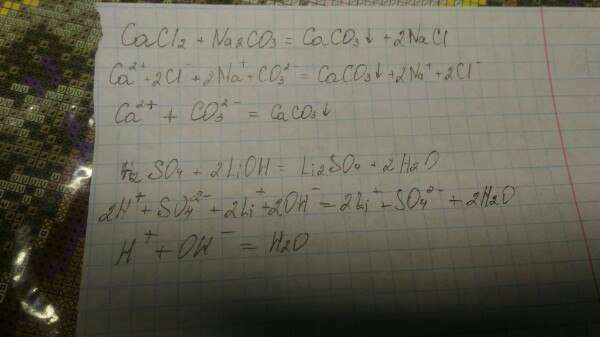 CaCl2 + Na2CO3 = CaCO3↓ + 2NaCl
Ca²⁺ + 2Cl⁻ + 2Na⁺ + CO3²⁻ = CaCO3↓ + 2Na⁺ + 2Cl⁻
Ca²⁺ + CO3²⁻ = CaCO3↓
H2SO4 + 2LiOH = Li2SO4 + 2H2O
2H⁺ + SO4²⁻ + 2Li⁺ + 2OH⁻ = 2Li⁺ + SO4²⁻ + 2H2O
H⁺ + OH⁻ = H2O